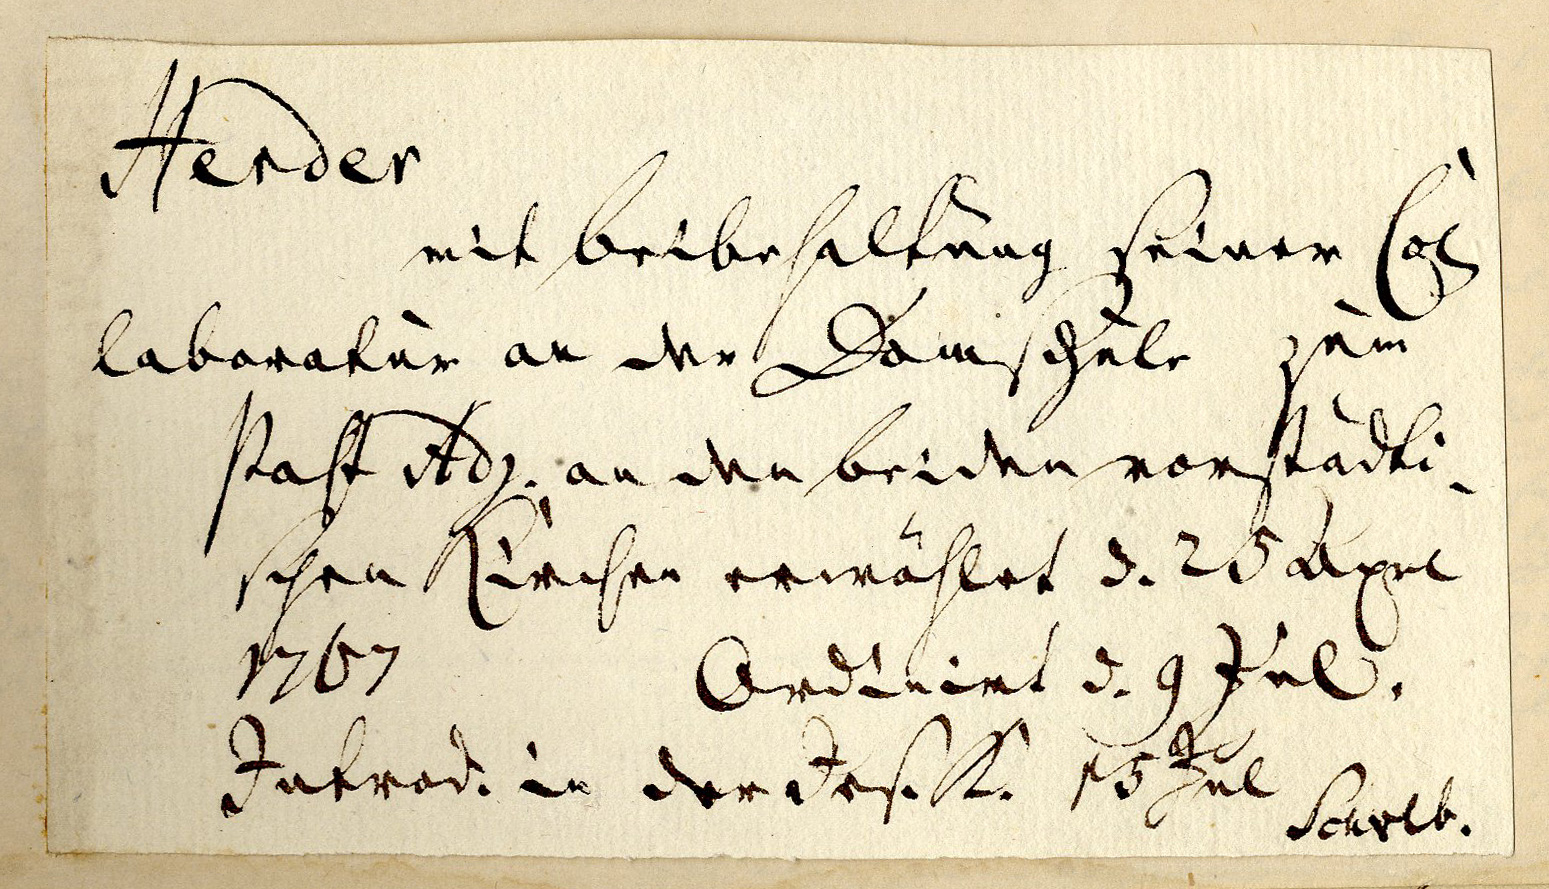 Herder
mit beibehaltung seiner Col
laboratur an der Domschule zum
Past Adj. an den beiden vorstädti-
schen Kirchen erwählet d. 25 Apr
1767 Ordinirt d. 9 Jul.
Introd. in der Jes. K. 15 Jul